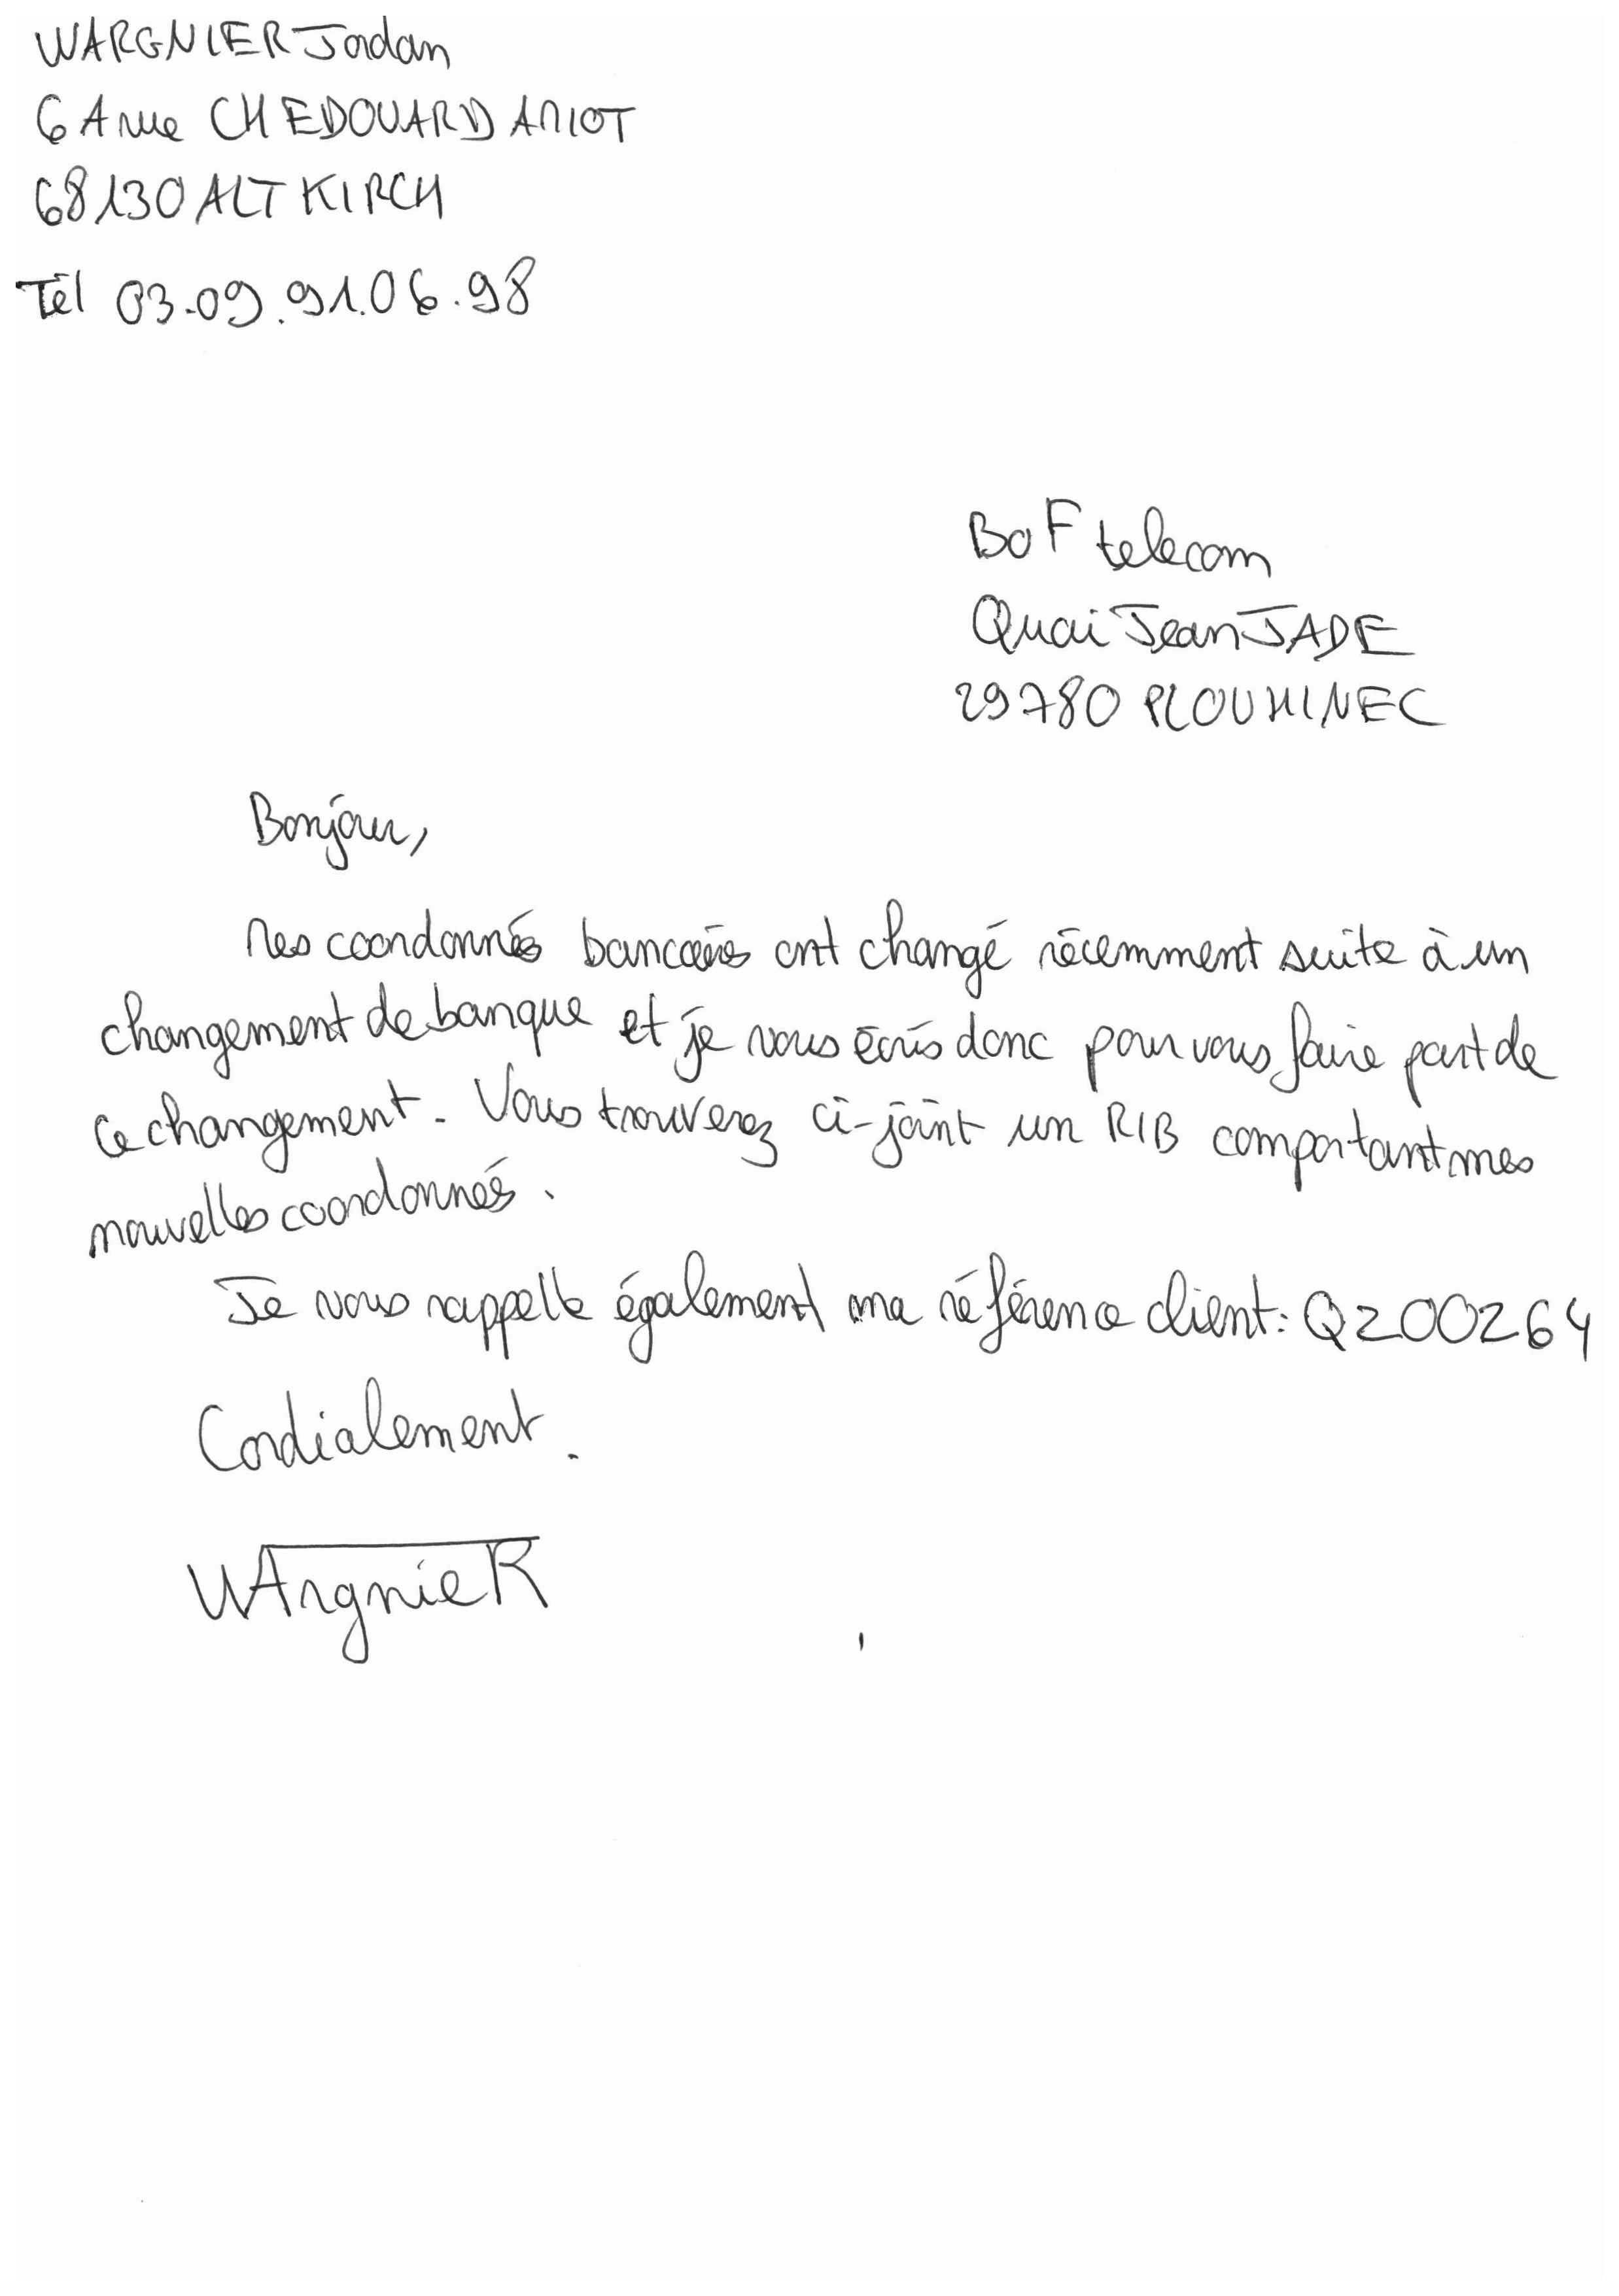 WARGNIER Jordan
6A rue CH EDOUARD AMIOT
68130 ALTKIRCH
Tél 03.09.91.06.98
BoF telecom
Quai Jean JADE
29780 PLOUHINEC
Bonjour,
Mes coordonnés bancaires ont changé récemment suite à un
changement de banque et je vous écris donc pour vous faire part de
ce changement. Vous trouverez ci-joint un RIB comportant mes
nouvelles coordonnés.
Je vous rappelle également ma référence client: QZ00264
Cordialement.
WArgnieR